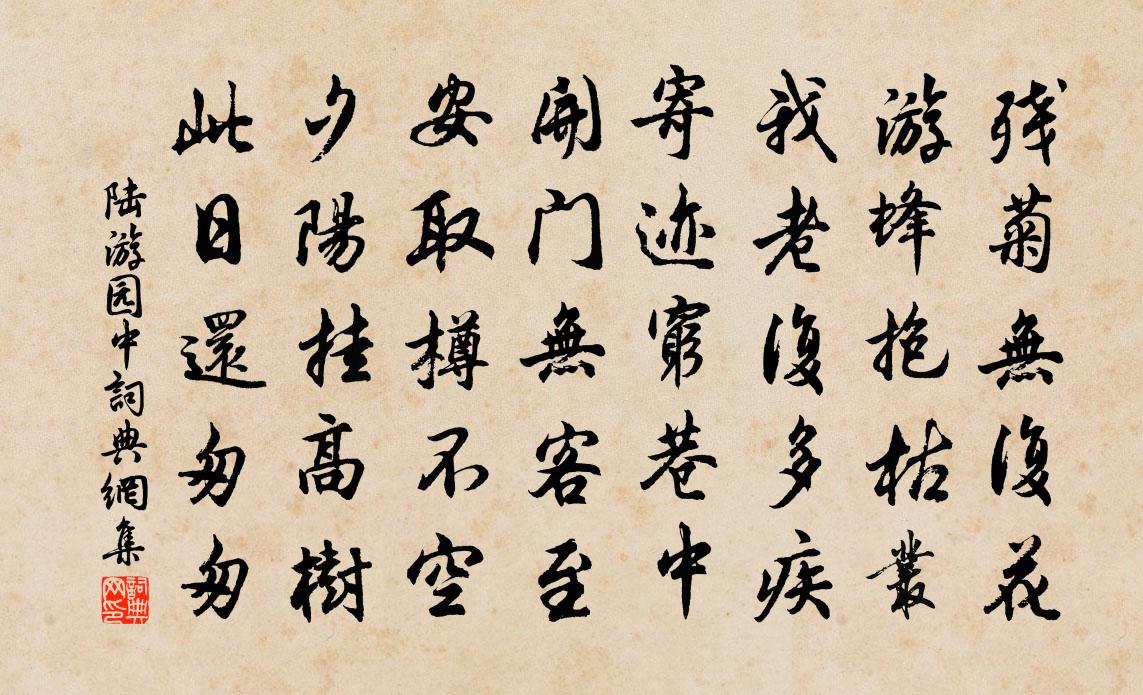 残菊無復花
游蜂抱枯叢
我老復多疾
寄迹窮巷中
開門無客至
安取樽不空
夕陽挂高樹
此日還匆匆
陆游园中詞典網集
詞典网印